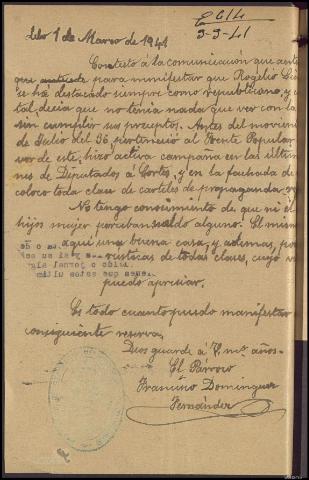 1 de Marzo de 1941
3-3-41
Contesto á la comunicación que
que para manifestar que Rogelio
se há destacado siempre como republicano, y
tal, decia que no tenia nada que ver con la
sin cumplir sus preceptos. Antes del movimi
de Julio del 36, perteneció al Frente Popular
vor de este, hizo activa campaña en las últim
nes de Diputados á Cortes, y en la fachada de
coloco toda clase de carteles de propaganda
No tengo conocimiento de que ni él
hijos mujer, perciban sueldo alguno. El mism
aqui una buena casa, y ademas, po
rusticas de todas clases, cuyo v
puedo apreciar.
Es todo cuanto puedo manifestar
consiguiente reserva.
Dios guarde á V. ms años.
El Párroco
Francisco Dominguez
Fernández